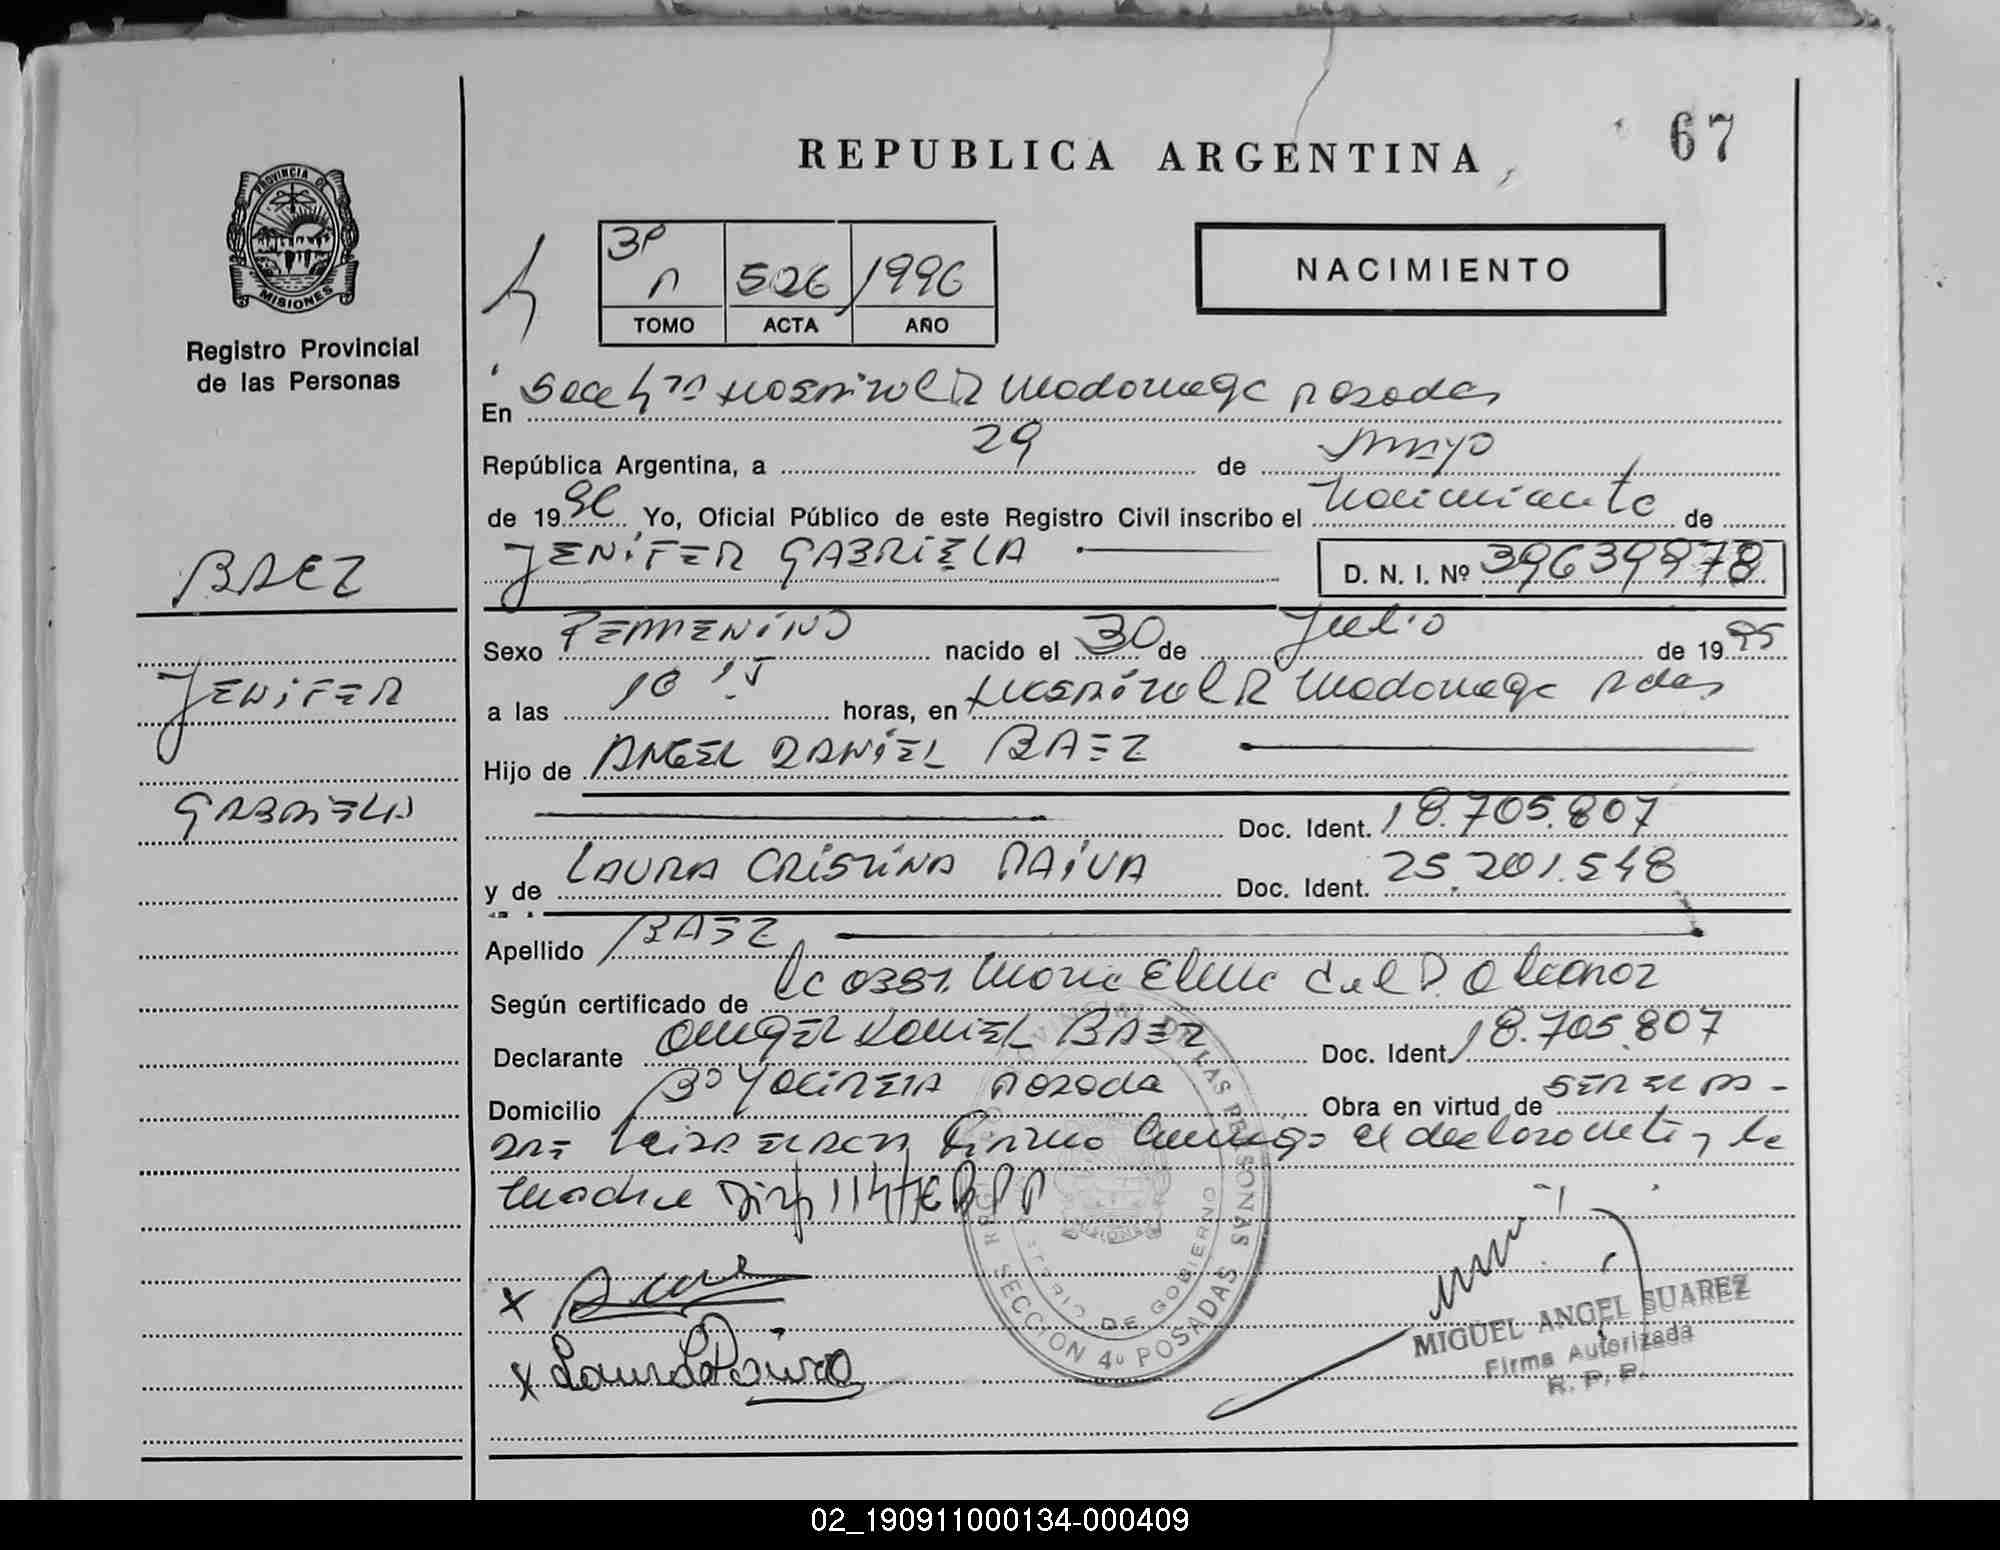 67
REPUBLICA ARGENTINA
PROVINCIA DE
MISIONES
Registro Provincial
de las Personas
3º
506 1996
TOMO ACTA AÑO
NACIMIENTO
En Secc 4ta Hospital R Madariaga Posadas
República Argentina, a 29 de mayo
de 1996 Yo, Oficial Público de este Registro Civil inscribo el Nacimiento de
JENIFER GABRIELA D. N. I. Nº 39639878
BAEZ
JENIFER
GABRIELA
Sexo FEMENINO nacido el 30 de Julio de 1995
a las 10 15 horas, en Hospital R Madariaga Pdas
Hijo de ANGEL DANIEL BAEZ
Doc. Ident. 18.705.807
y de LAURA CRISTINA PAIVA Doc. Ident. 25.201.548
Apellido BAEZ
Según certificado de la Maria Elena del
Declarante ANGEL DANIEL BAEZ Doc. Ident. 18.705.807
Domicilio Bº YACIRETA Posada Obra en virtud de SER EL PA-
DRE Leida el acta firma conmigo el declarante y la
madre
REGISTRO PROVINCIAL DE LAS PERSONAS
MINISTERIO DE GOBIERNO
SECCION 4º POSADAS
MIGUEL ANGEL SUAREZ
Firma Autorizada
R. P. P.
02_190911000134-000409